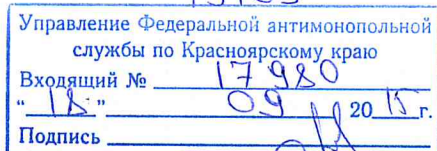 Управление Федеральной антимонопольной
службы по Красноярскому краю
Входящий № 17980
"18" 09 2015 г.
Подпись